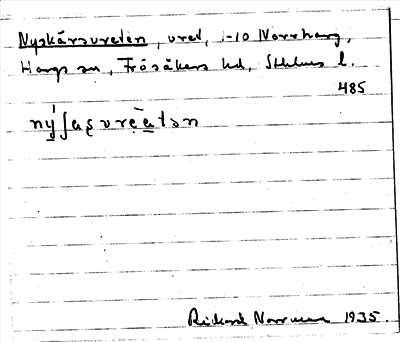 Nyskärsureten, uret, i-10 Norrharg,
Hargs sn, Frösåkers hd, Sthlms l.
485
Rickard Norrman 1935.